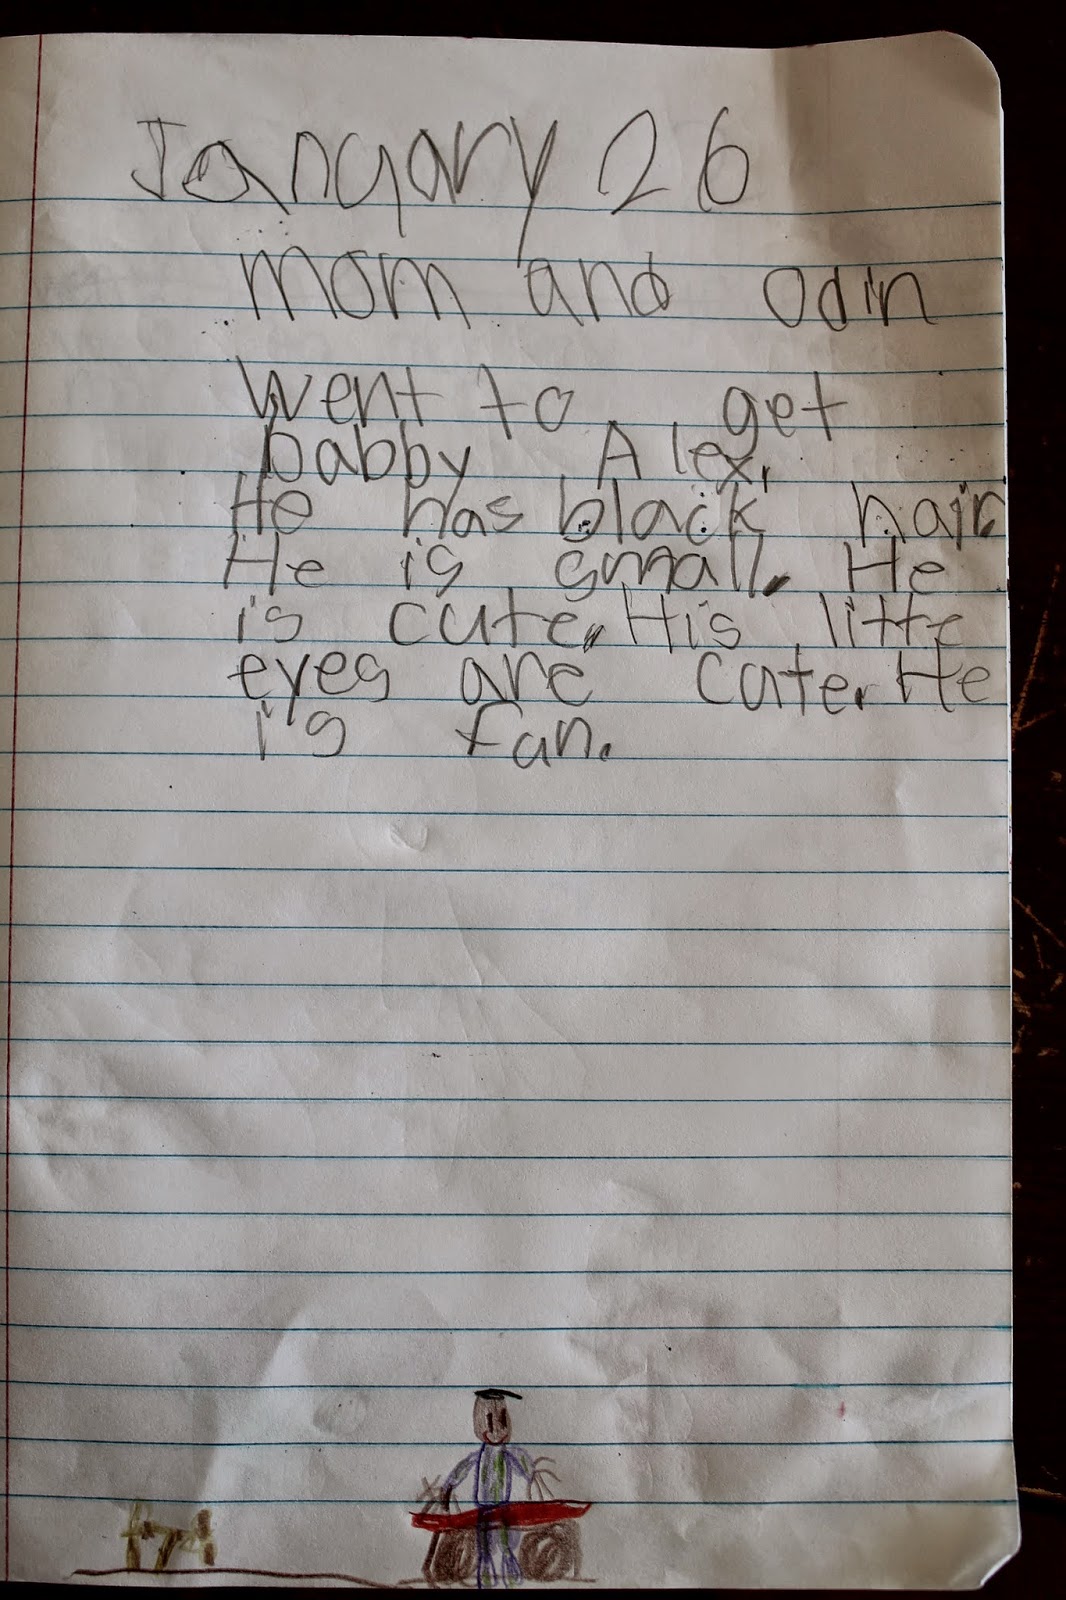 January 26
mom and Odin
went to get
babby Alex,
He has black hair
He is small. He
is cute. His litte
eyes are cute. He
is fun.